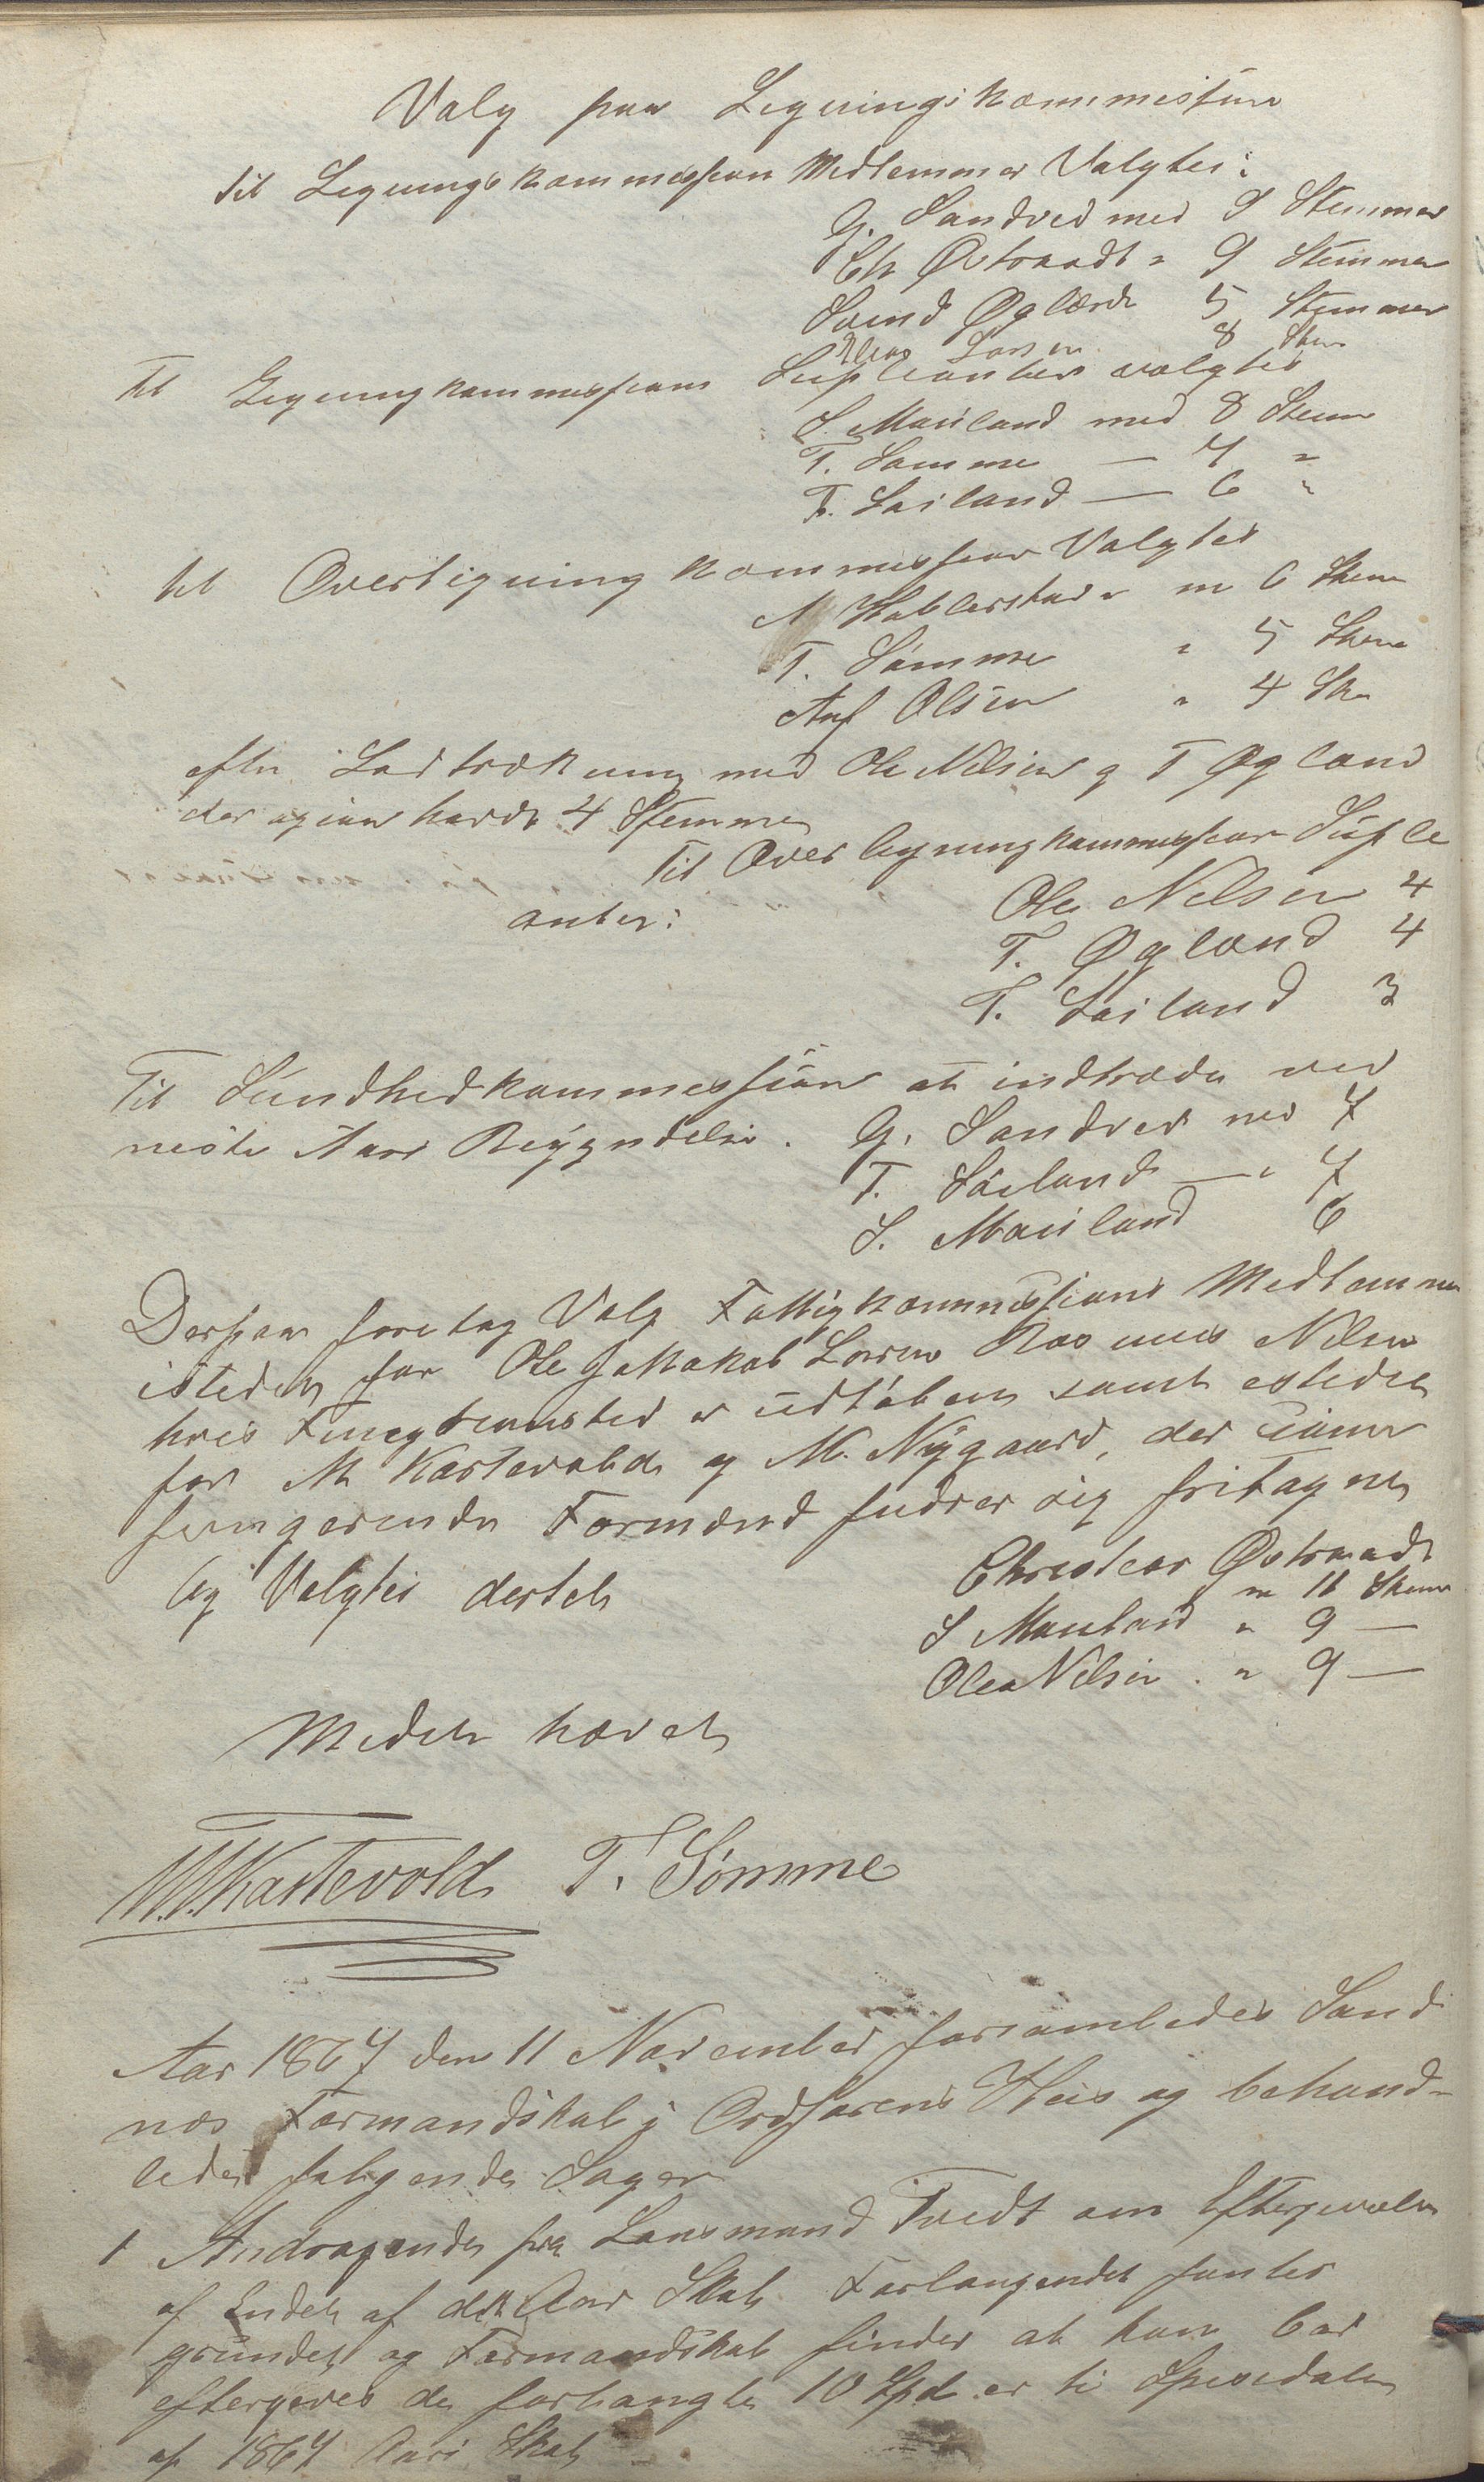 Valg paa Ligningskommission
til Ligningskommission Medlemmer Valgtes:
G. Sandved med 9 Stemmer
Ch Østraadt " 9 Stemmer
Svend Øglænd 5 Stemmer
Elias Larsen 8 Stem
Til Ligningkommission Supleanter valgtes
S. Mauland med 8 Stem
T. Sømme — 7 "
T. Lauland — 6 "
til Overligning kommission Valgtes
m 6 Stem
T. Sømme " 5 Stem
Olsen " 4 Ste
efter Lodtrækning med Ole Nilsen og T Øgland
der ogsaa havde 4 Stemmer
Til Over ligningkommission Suple
anter:
Ole Nelsen 4
T. Øgland 4
T. Lauland 3
Til Sundhedkommession at indtræde ved
neste Aars Begyndelse. G. Sandved med 7
T. Lauland — " 7
S. Mauland 6
Derpaa foretag Valg Fattigkommissions Medlemmer
istedet for Ole Jakob Larsen Rasmus Nilsen
hvis Funcgtionstid er udløben samt istedet
for M Kastevold og M. Nygaard, der som
fungerende Formænd fudrer sig fritagne
Og Valgtes dertil
Christian Østraadt
m 11 Stem
S Mauland " 9 —
Ole Nilsen " 9 —
Mødet hævet
M. Kastevold T. Sømme
Aar 1867 den 11 November forsamledes Sand
næs Formandskab i Ordførens Hus og behand-
ledes følgende Sager
1 Andragende fra Lensmand Tvedt om Eftergivelse
af Endel af dette Aars Skat. Forlangendet funtes
grundet og Formandskab finder at ham bør
eftergives de forlangte 10 Spd. er ti Spesidaler
af 1867 Aars Skat